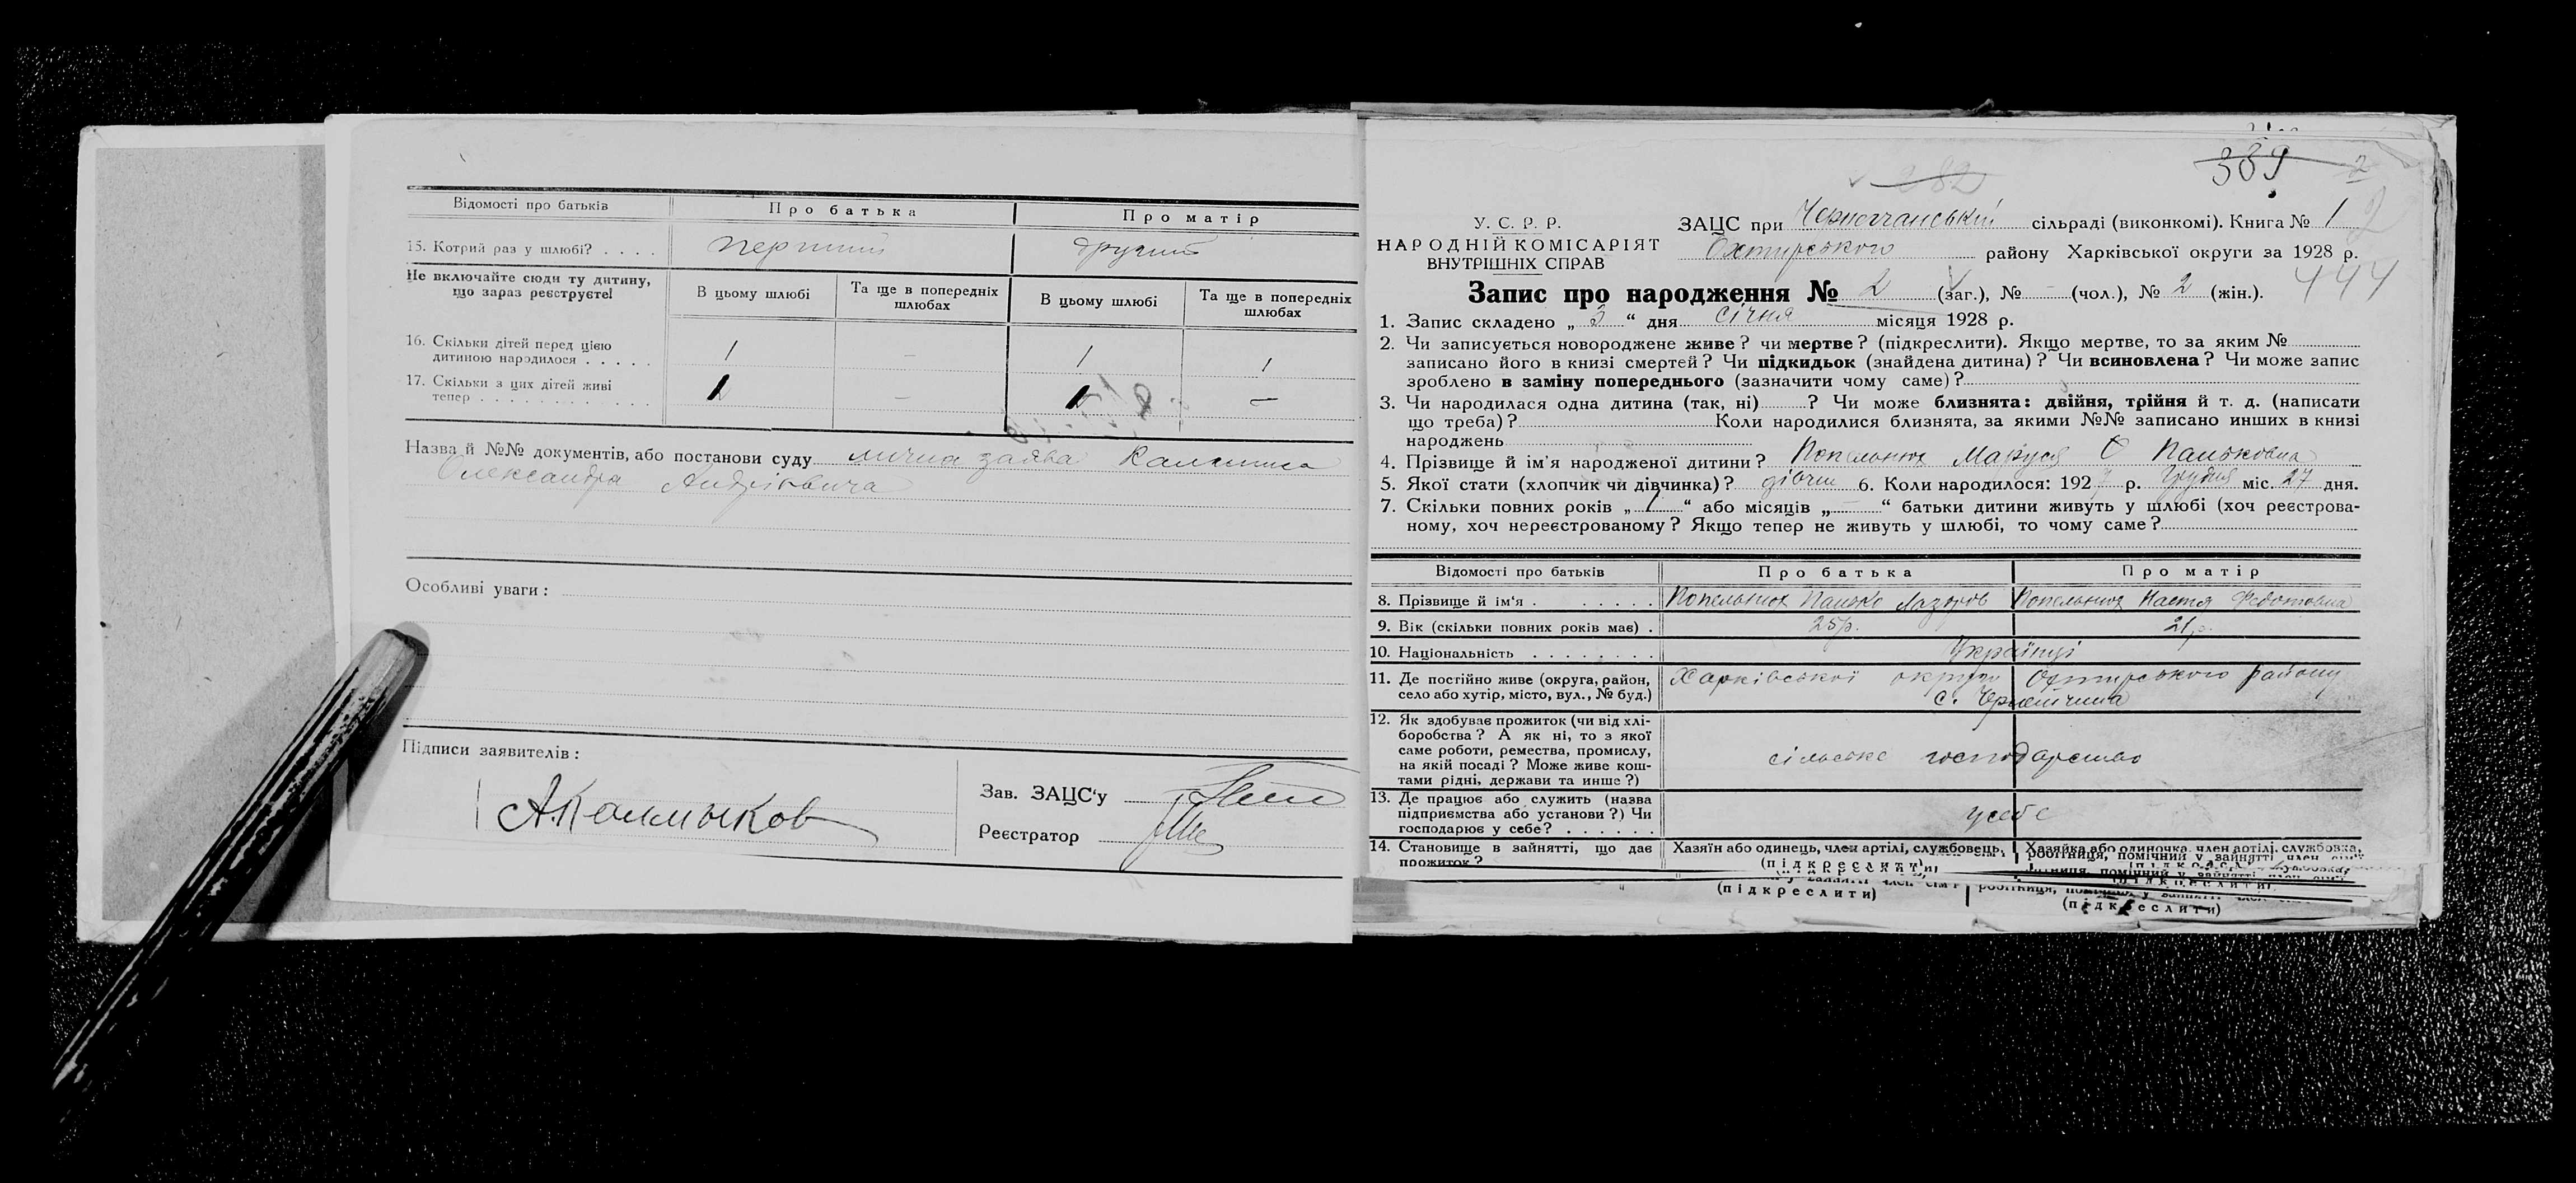 Відомості про батьків Про батька Про матір
15. Котрий раз у шлюбі? . . . . перший другий
Не включайте сюди ту дитину, що зараз реєструєте!
В цьому шлюбі Та ще в попередніх шлюбах В цьому шлюбі Та ще в попередніх шлюбах
16. Скільки дітей перед цією
дитиною народилося . . . . . 1 – 1 1
17. Скільки з цих дітей живі
тепер . . . . . . . . . . . . 1 – 1 –
Назва й №№ документів, або постанови суду лична заява
Олександра Андрієвича
Особливі уваги:
Підписи заявителів:
А.Калмыков
Зав. ЗАЦС'у
Реєстратор
282
389 2
2
У. С. Р. Р.
НАРОДНІЙ КОМІСАРІЯТ
ВНУТРІШНІХ СПРАВ
ЗАЦС при сільраді (виконкомі). Книга № 1
Охтирського району Харківської округи за 1928 р.
444
Запис про народження № 2 (заг.), № – (чол.), № 2 (жін.).
1. Запис складено „ 3 “ дня січня місяця 1928 р.
2. Чи записується новороджене живе? чи мертве? (підкреслити). Якщо мертве, то за яким №
записано його в книзі смертей? Чи підкидьок (знайдена дитина)? Чи всиновлена? Чи може запис
зроблено в заміну попереднього (зазначити чому саме)?
3. Чи народилася одна дитина (так, ні) ? Чи може близнята: двійня, трійня й т. д. (написати
що треба)? Коли народилися близнята, за якими №№ записано инших в книзі
народжень
4. Прізвище й ім'я народженої дитини? Попельнюх Маруся Паньковна
5. Якої стати (хлопчик чи дівчинка)? дівчи 6. Коли народилося: 1927 р. грудня міс. 27 дня.
7. Скільки повних років „ 1 “ або місяців „ – “ батьки дитини живуть у шлюбі (хоч реєстрова-
ному, хоч нереєстрованому? Якщо тепер не живуть у шлюбі, то чому саме?
Відомості про батьків Про батька Про матір
8. Прізвище й ім'я . . . . . . . . Попельнюх Панько Лазоров Попельнюх Настя Федотовна
9. Вік (скільки повних років має) . 25р. 21р.
10. Національність . . . . . . . . Українці
11. Де постійно живе (округа, район,
село або хутір, місто, вул., № буд.) Харківської округи Охтирського району
с. Чернеччина
12. Як здобуває прожиток (чи від хлі-
боробства? А як ні, то з якої
саме роботи, ремества, промислу,
на якій посаді? Може живе кош-
тами рідні, держави та инше?) сільське господарство
13. Де працює або служить (назва
підприємства або установи?) Чи
господарює у себе? . . . . . . у себе
14. Становище в зайнятті, що дає
прожиток?
Хазяїн або одинець, член артілі, службовець,
(підкреслити)
Хазяйка або одиночка, член артілі, службовка,
робітниця, помічний у зайнятті член сім'ї
(підкреслити)
(підкреслити)
(підкреслити)